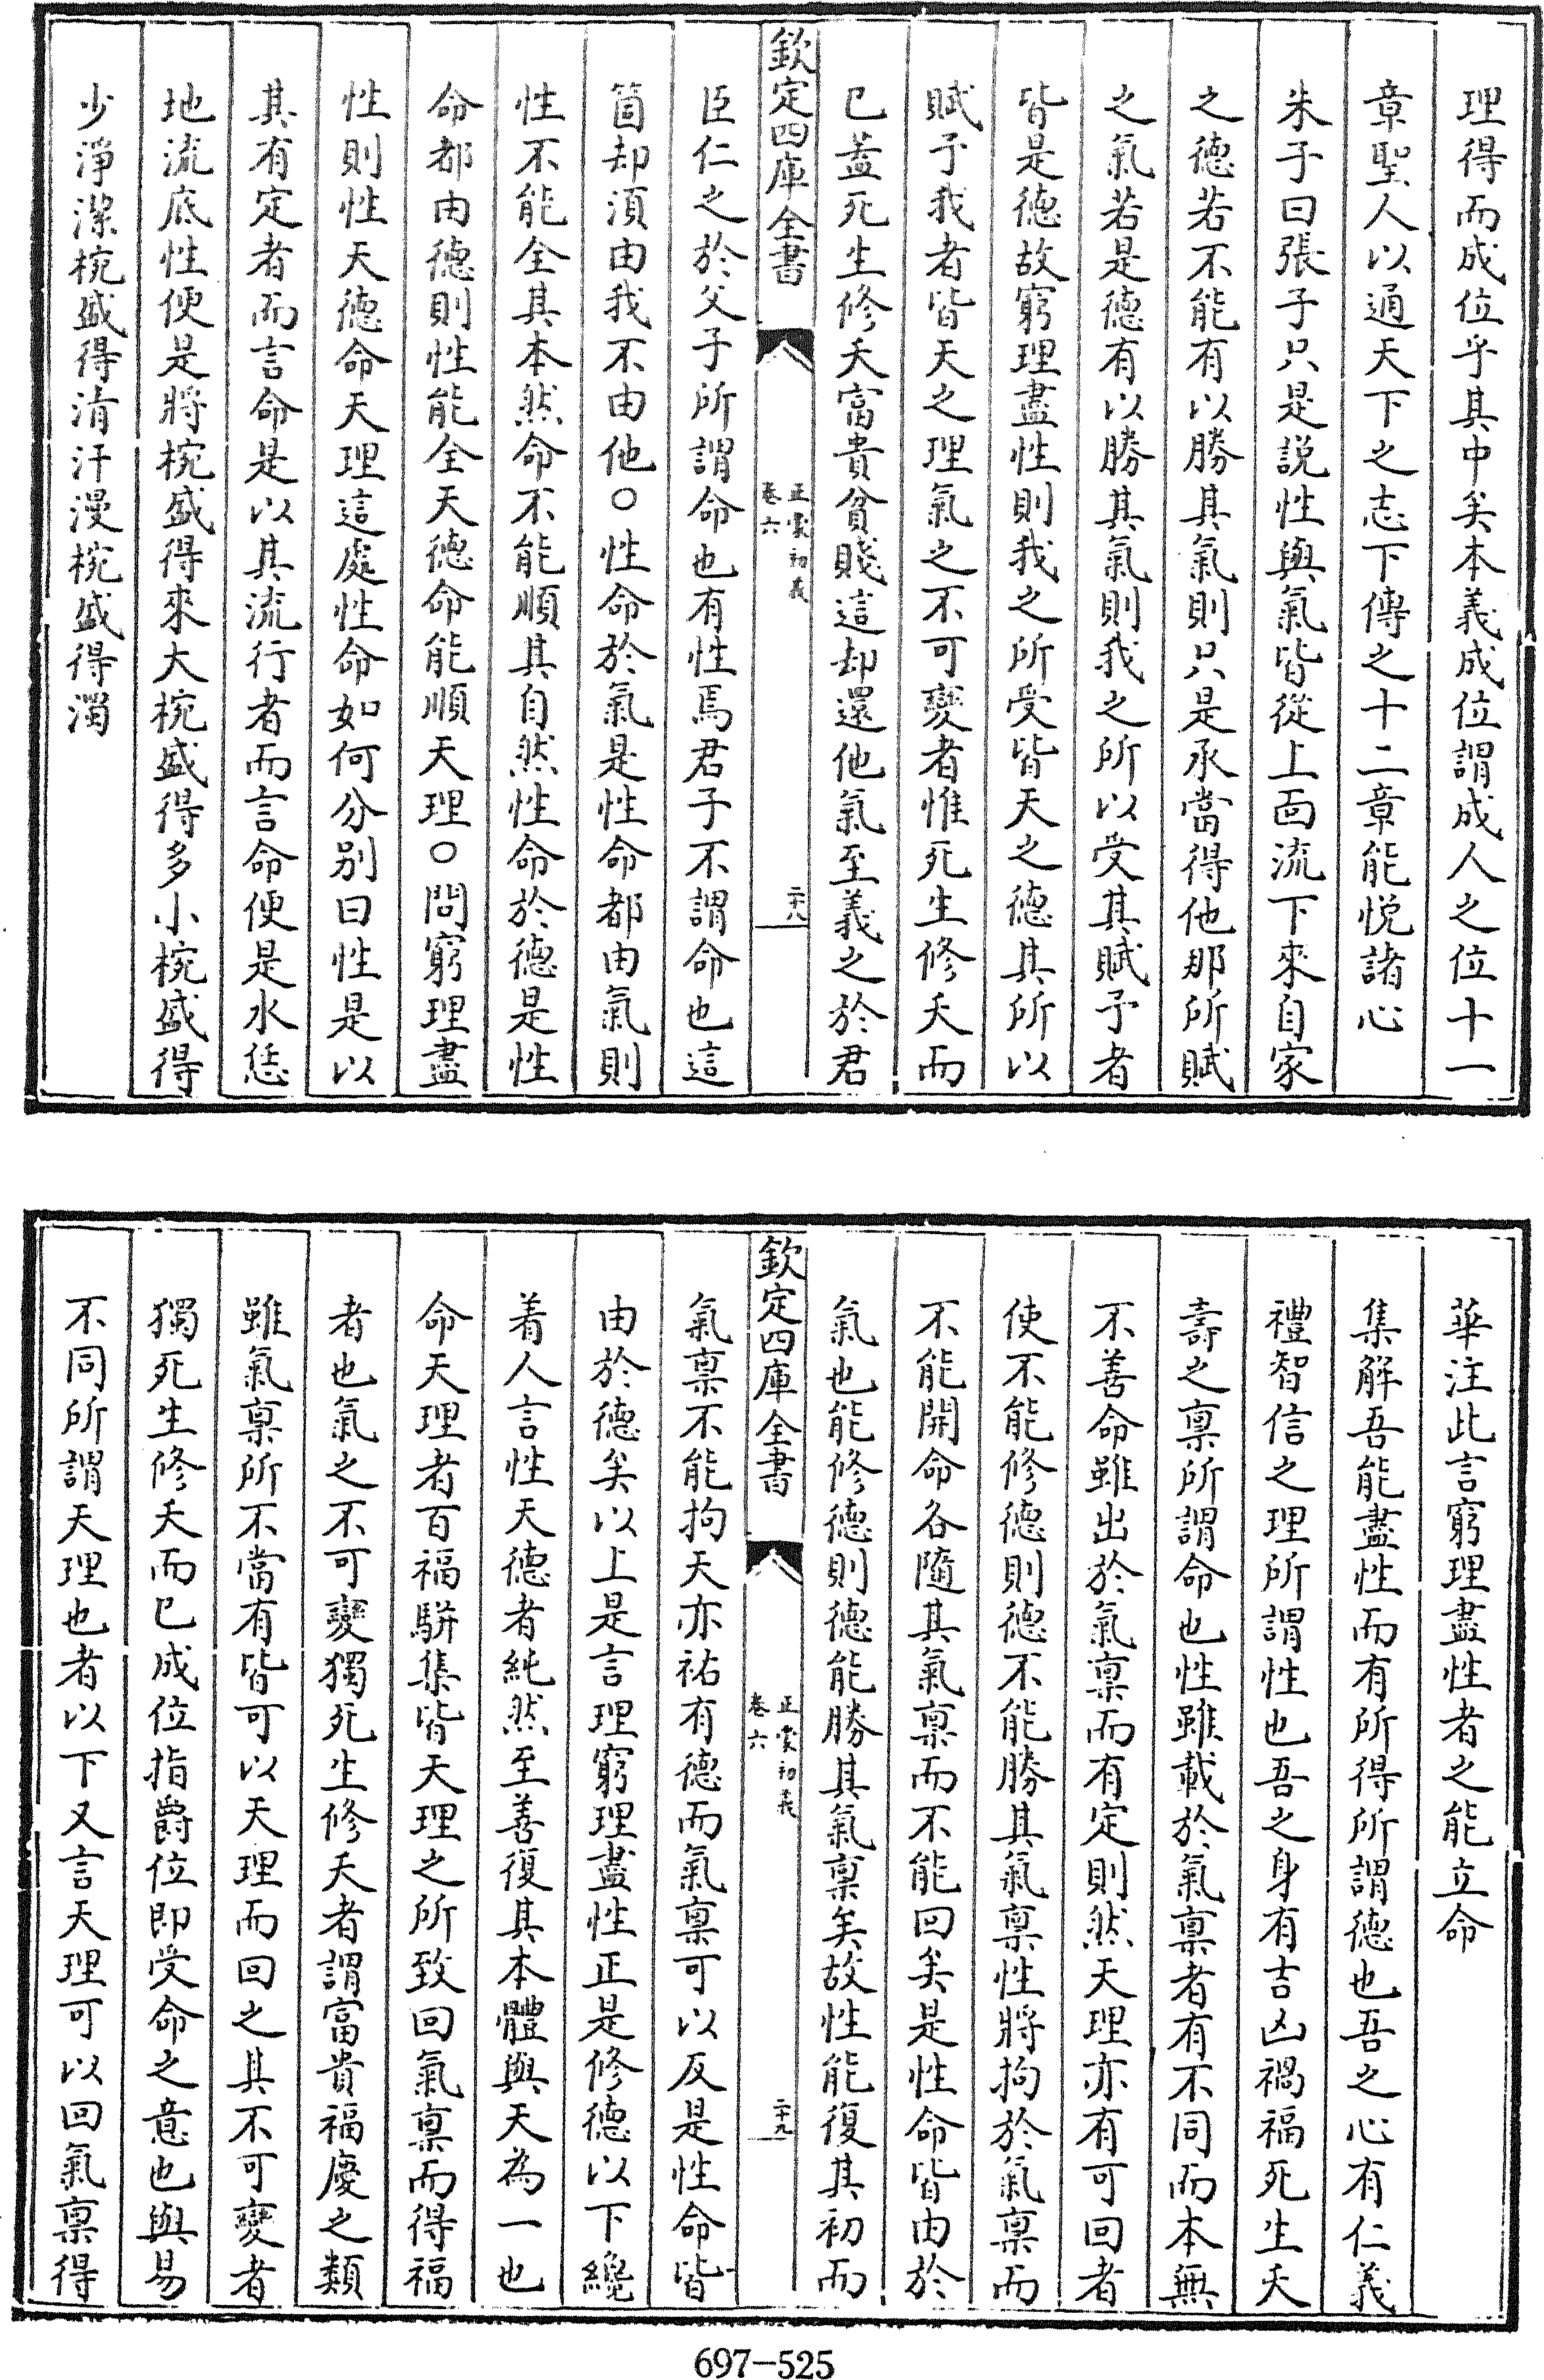 理得而成位乎其中矣本義成位謂成人之位十一
章聖人以通天下之志下傳之十二章能悦諸心
朱子曰張子只是説性與氣皆從上面流下來自家
之德若不能有以勝其氣則只是承當得他那所賦
之氣若是德有以勝其氣則我之所以受其賦予者
皆是德故窮理盡性則我之所受皆天之德其所以
賦予我者皆天之理氣之不可變者惟死生修夭而
已蓋死生修夭富貴貧賤這却還他氣至義之於君
欽定四庫全書
正蒙初義
卷六
二十八
臣仁之於父子所謂命也有性焉君子不謂命也這
箇却須由我不由他○性命於氣是性命都由氣則
性不能全其本然命不能順其自然性命於德是性
命都由德則性能全天德命能順天理○問窮理盡
性則性天德命天理這處性命如何分别曰性是以
其有定者而言命是以其流行者而言命便是水恁
地流底性便是將椀盛得來大椀盛得多小椀盛得
少淨潔椀盛得清汙漫椀盛得濁
華注此言窮理盡性者之能立命
集解吾能盡性而有所得所謂德也吾之心有仁義
禮智信之理所謂性也吾之身有吉凶禍福死生夭
壽之稟所謂命也性雖載於氣稟者有不同而本無
不善命雖出於氣稟而有定則然天理亦有可回者
使不能修德則德不能勝其氣稟性將拘於氣稟而
不能開命各隨其氣稟而不能回矣是性命皆由於
氣也能修德則德能勝其氣稟矣故性能復其初而
欽定四庫全書
正蒙初義
卷六
二十九
氣稟不能拘天亦祐有德而氣稟可以反是性命皆
由於德矣以上是言理窮理盡性正是修德以下纔
着人言性天德者純然至善復其本體與天為一也
命天理者百福駢集皆天理之所致回氣稟而得福
者也氣之不可變獨死生修夭者謂富貴福慶之類
雖氣稟所不當有皆可以天理而回之其不可變者
獨死生修夭而已成位指爵位即受命之意也與易
不同所謂天理也者以下又言天理可以回氣稟得
697-525